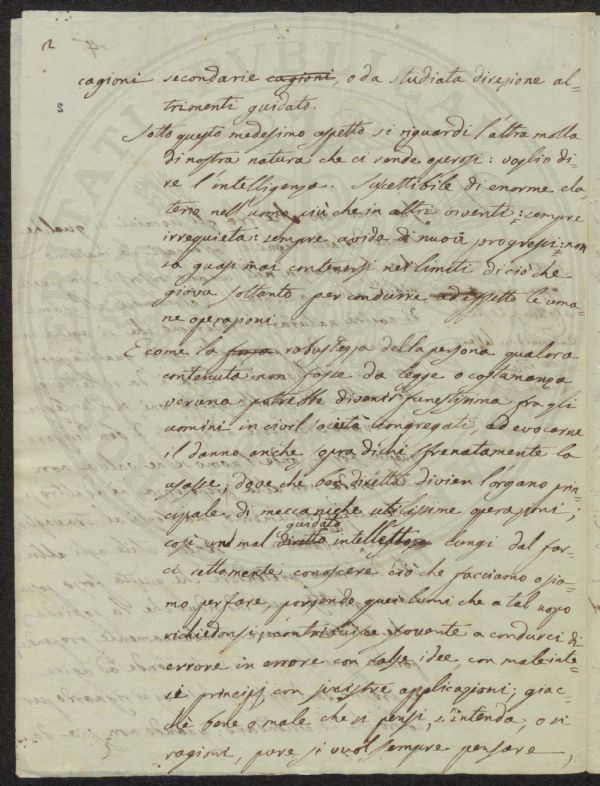 2
cagioni secondarie cagioni, o da studiata direzione al=
trimenti guidato.
Sotto questo medesimo aspetto si riguardi l'altra molla
di nostra natura che ci rende operosi: voglio di=
re l'intelligenza. Suscettibile di enorme ela=
terio nell'uomo più che in altri viventi: sempre
irrequieta: sempre avida di nuovi progressi: non
sa quasi mai contenersi nei limiti di ciò che
giova soltanto per condurre ad effetto le uma=
ne operazioni.
E come la forza robustezza della persona qualora
contenuta non fosse da legge o costumanza
veruna potrebbe divenir funestissima fra gli
uomini in civil società congregati, ed evocarne
il danno anche sopra di chi sfrenatamente la
usasse, dove che ben diretta divien l'organo prin=
cipale di meccaniche utilissime operazioni;
guidato
così un mal diretto intelletto lungi dal far=
ci rettamente conoscere ciò che facciamo o sia=
mo per fare, porgendo quei lumi che a tal uopo
richiedonsi, contribuisce sovente a condurci di
errore in errore con false idee, con male inte=
si principj, con sinistre applicazioni; giac=
chè bene o male che si pensi, s'intenda, o si
ragioni, pure si vuol sempre pensare,